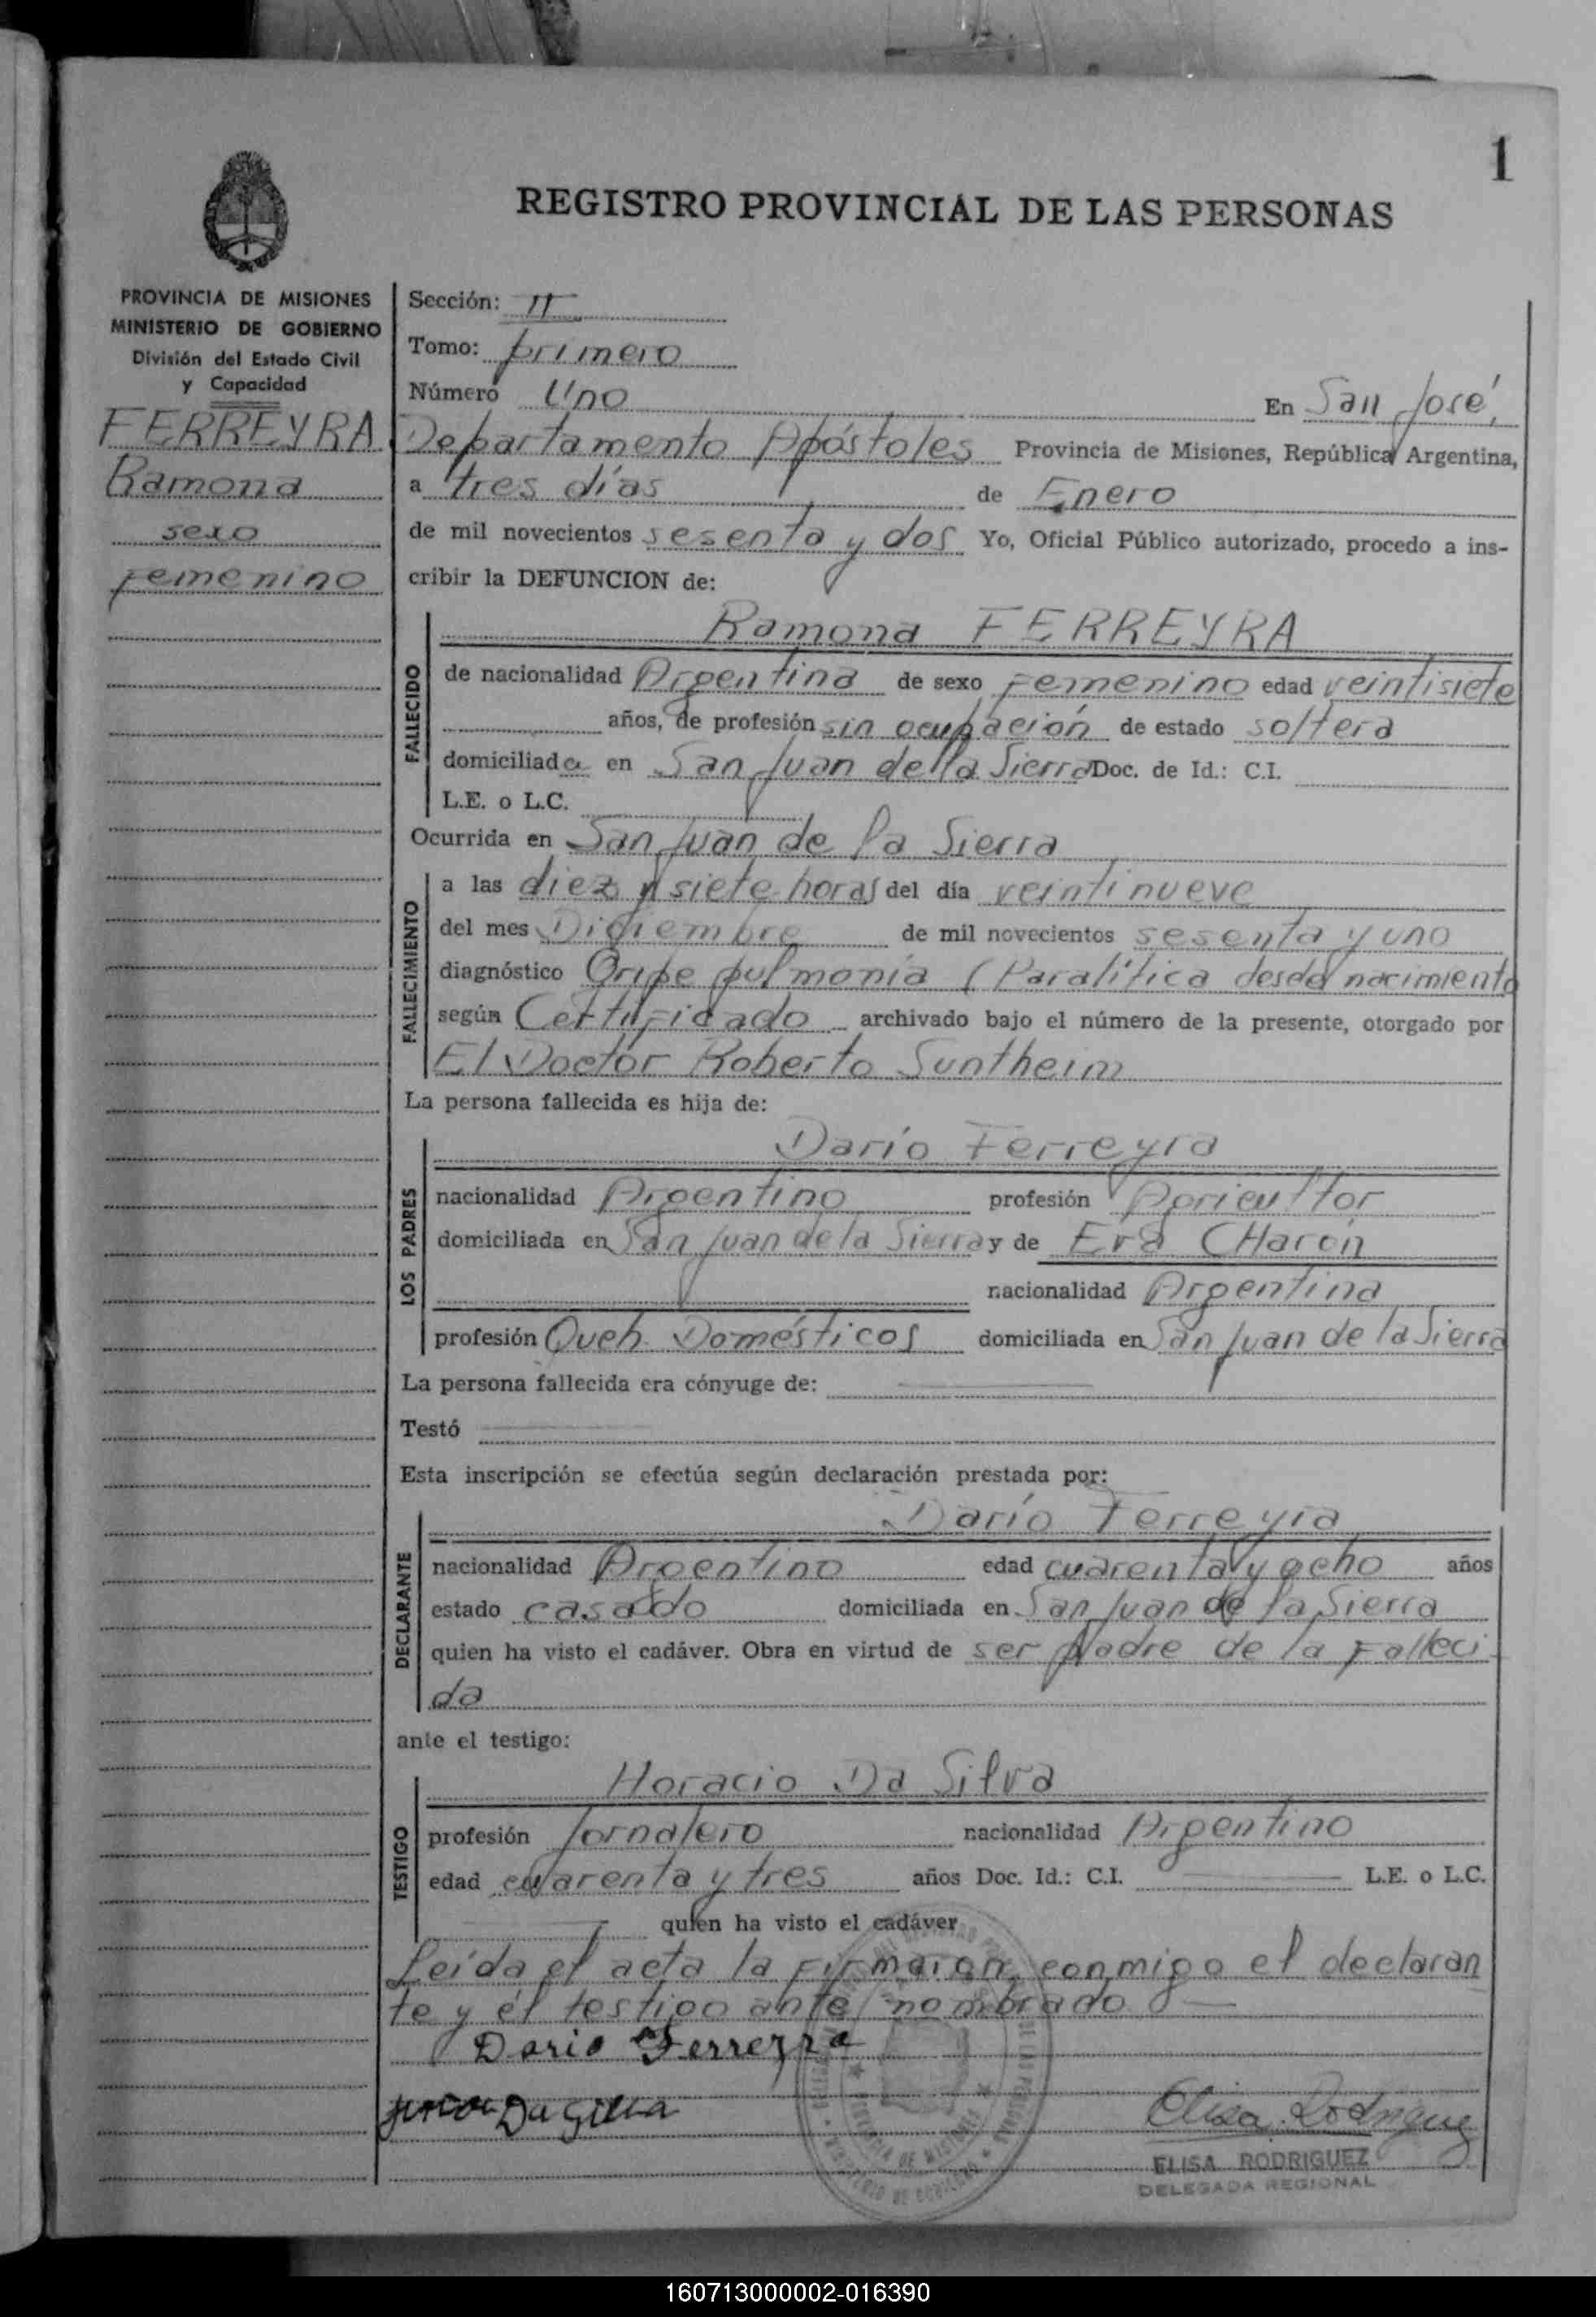 1
REGISTRO PROVINCIAL DE LAS PERSONAS
PROVINCIA DE MISIONES
MINISTERIO DE GOBIERNO
División del Estado Civil
y Capacidad
FERREYRA
Ramona
sexo
femenino
Sección: II
Tomo: primero
Número Uno En San José,
Departamento Apóstoles Provincia de Misiones, República Argentina,
a tres días de Enero
de mil novecientos sesenta y dos Yo, Oficial Público autorizado, procedo a ins-
cribir la DEFUNCION de:
FALLECIDO
Ramona FERREYRA
de nacionalidad Argentina de sexo femenino edad veintisiete
años, de profesión sin ocupación de estado soltera
domiciliada en San Juan de la Sierra Doc. de Id.: C.I.
L.E. o L.C.
Ocurrida en San Juan de la Sierra
FALLECIMIENTO
a las diez y siete horas del día veintinueve
del mes Diciembre de mil novecientos sesenta y uno
diagnóstico Gripe pulmonía (Paralítica desde nacimiento
según Certificado archivado bajo el número de la presente, otorgado por
El Doctor Roberto Suntheim
La persona fallecida es hija de:
LOS PADRES
Darío Ferreyra
nacionalidad Argentino profesión Agricultor
domiciliada en San Juan de la Sierra y de Eva CHarón
nacionalidad Argentina
profesión Queh. Domésticos domiciliada en San Juan de la Sierra
La persona fallecida era cónyuge de:
Testó
Esta inscripción se efectúa según declaración prestada por:
DECLARANTE
Darío Ferreyra
nacionalidad Argentino edad cuarenta y ocho años
estado casado domiciliada en San Juan de la Sierra
quien ha visto el cadáver. Obra en virtud de ser padre de la falleci
da
ante el testigo:
TESTIGO
Horacio Da Silva
profesión Jornalero nacionalidad Argentino
edad cuarenta y tres años Doc. Id.: C.I. L.E. o L.C.
quien ha visto el cadáver
Leída el acta la firmaron conmigo el declaran
te y el testigo ante nombrado
Dario Ferreyra
Da Silva
Elisa Rodriguez
ELISA RODRIGUEZ
DELEGADA REGIONAL
160713000002-016390